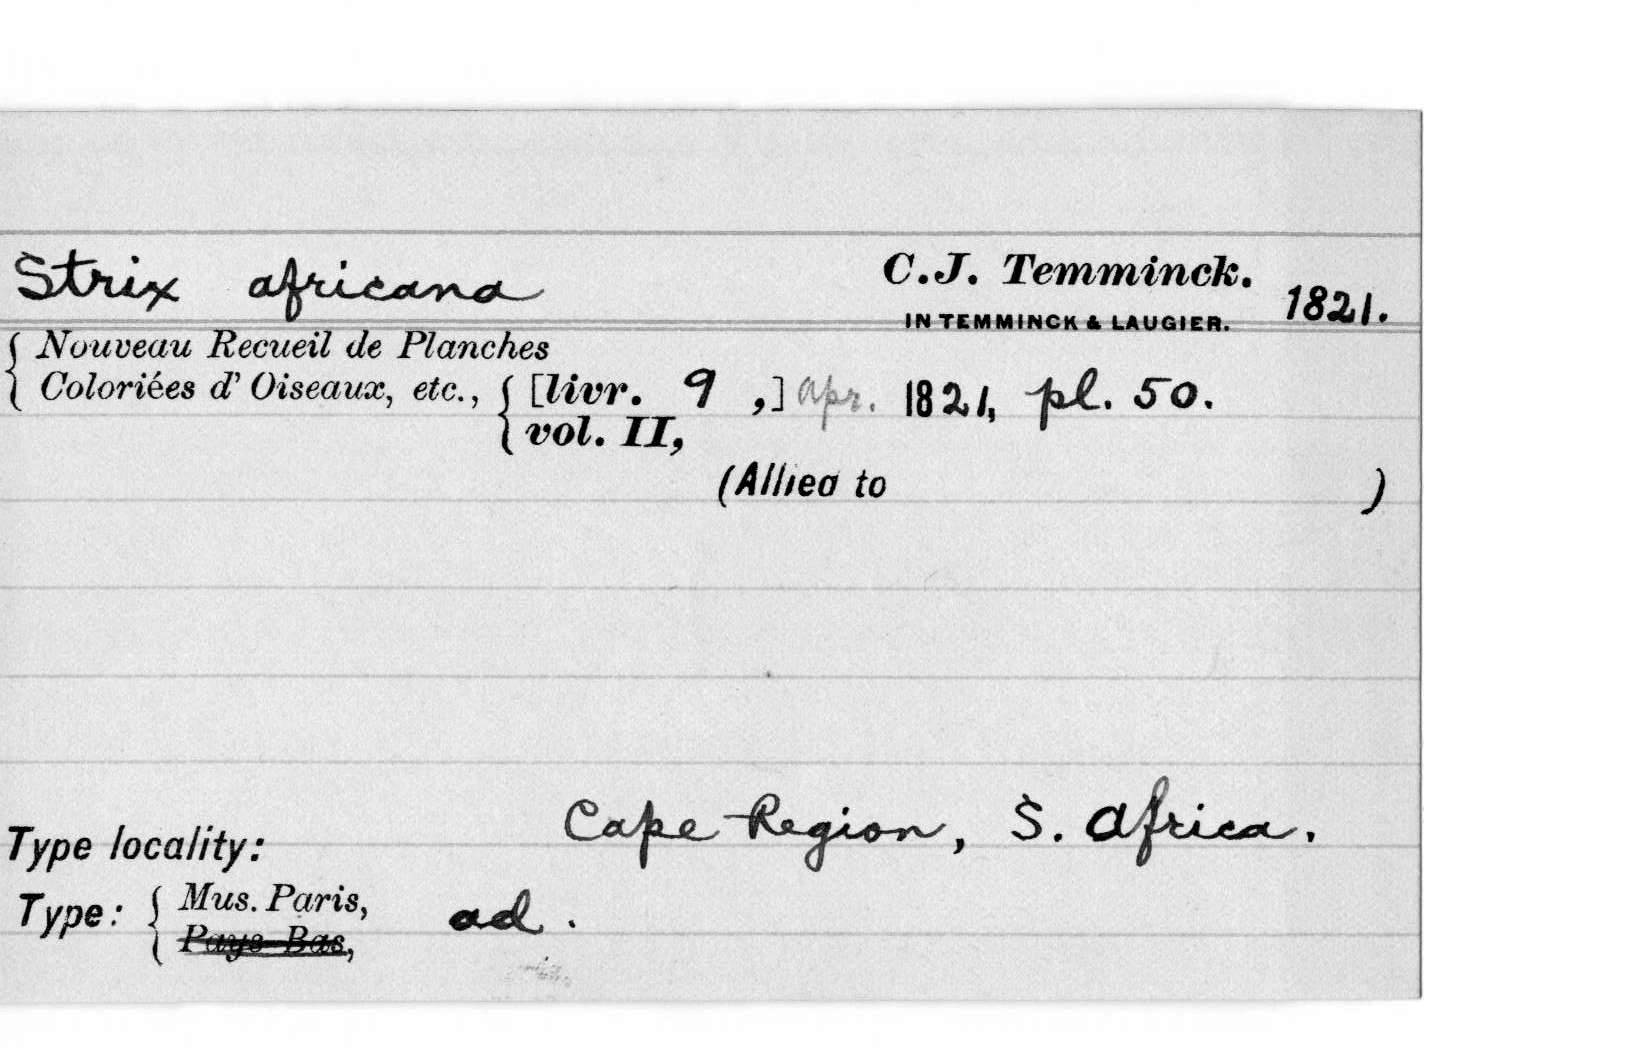 Strix africana C.J. Temminck. 1821.
IN TEMMINCK & LAUGIER.
Nouveau Recueil de Planches
Coloriées d' Oiseaux, etc., [livr. 9 ,] Apr. 1821, pl. 50.
vol. II,
(Allied to )
Type locality: Cape Region, S. Africa.
Type: Mus. Paris, ad.
Pays-Bas,